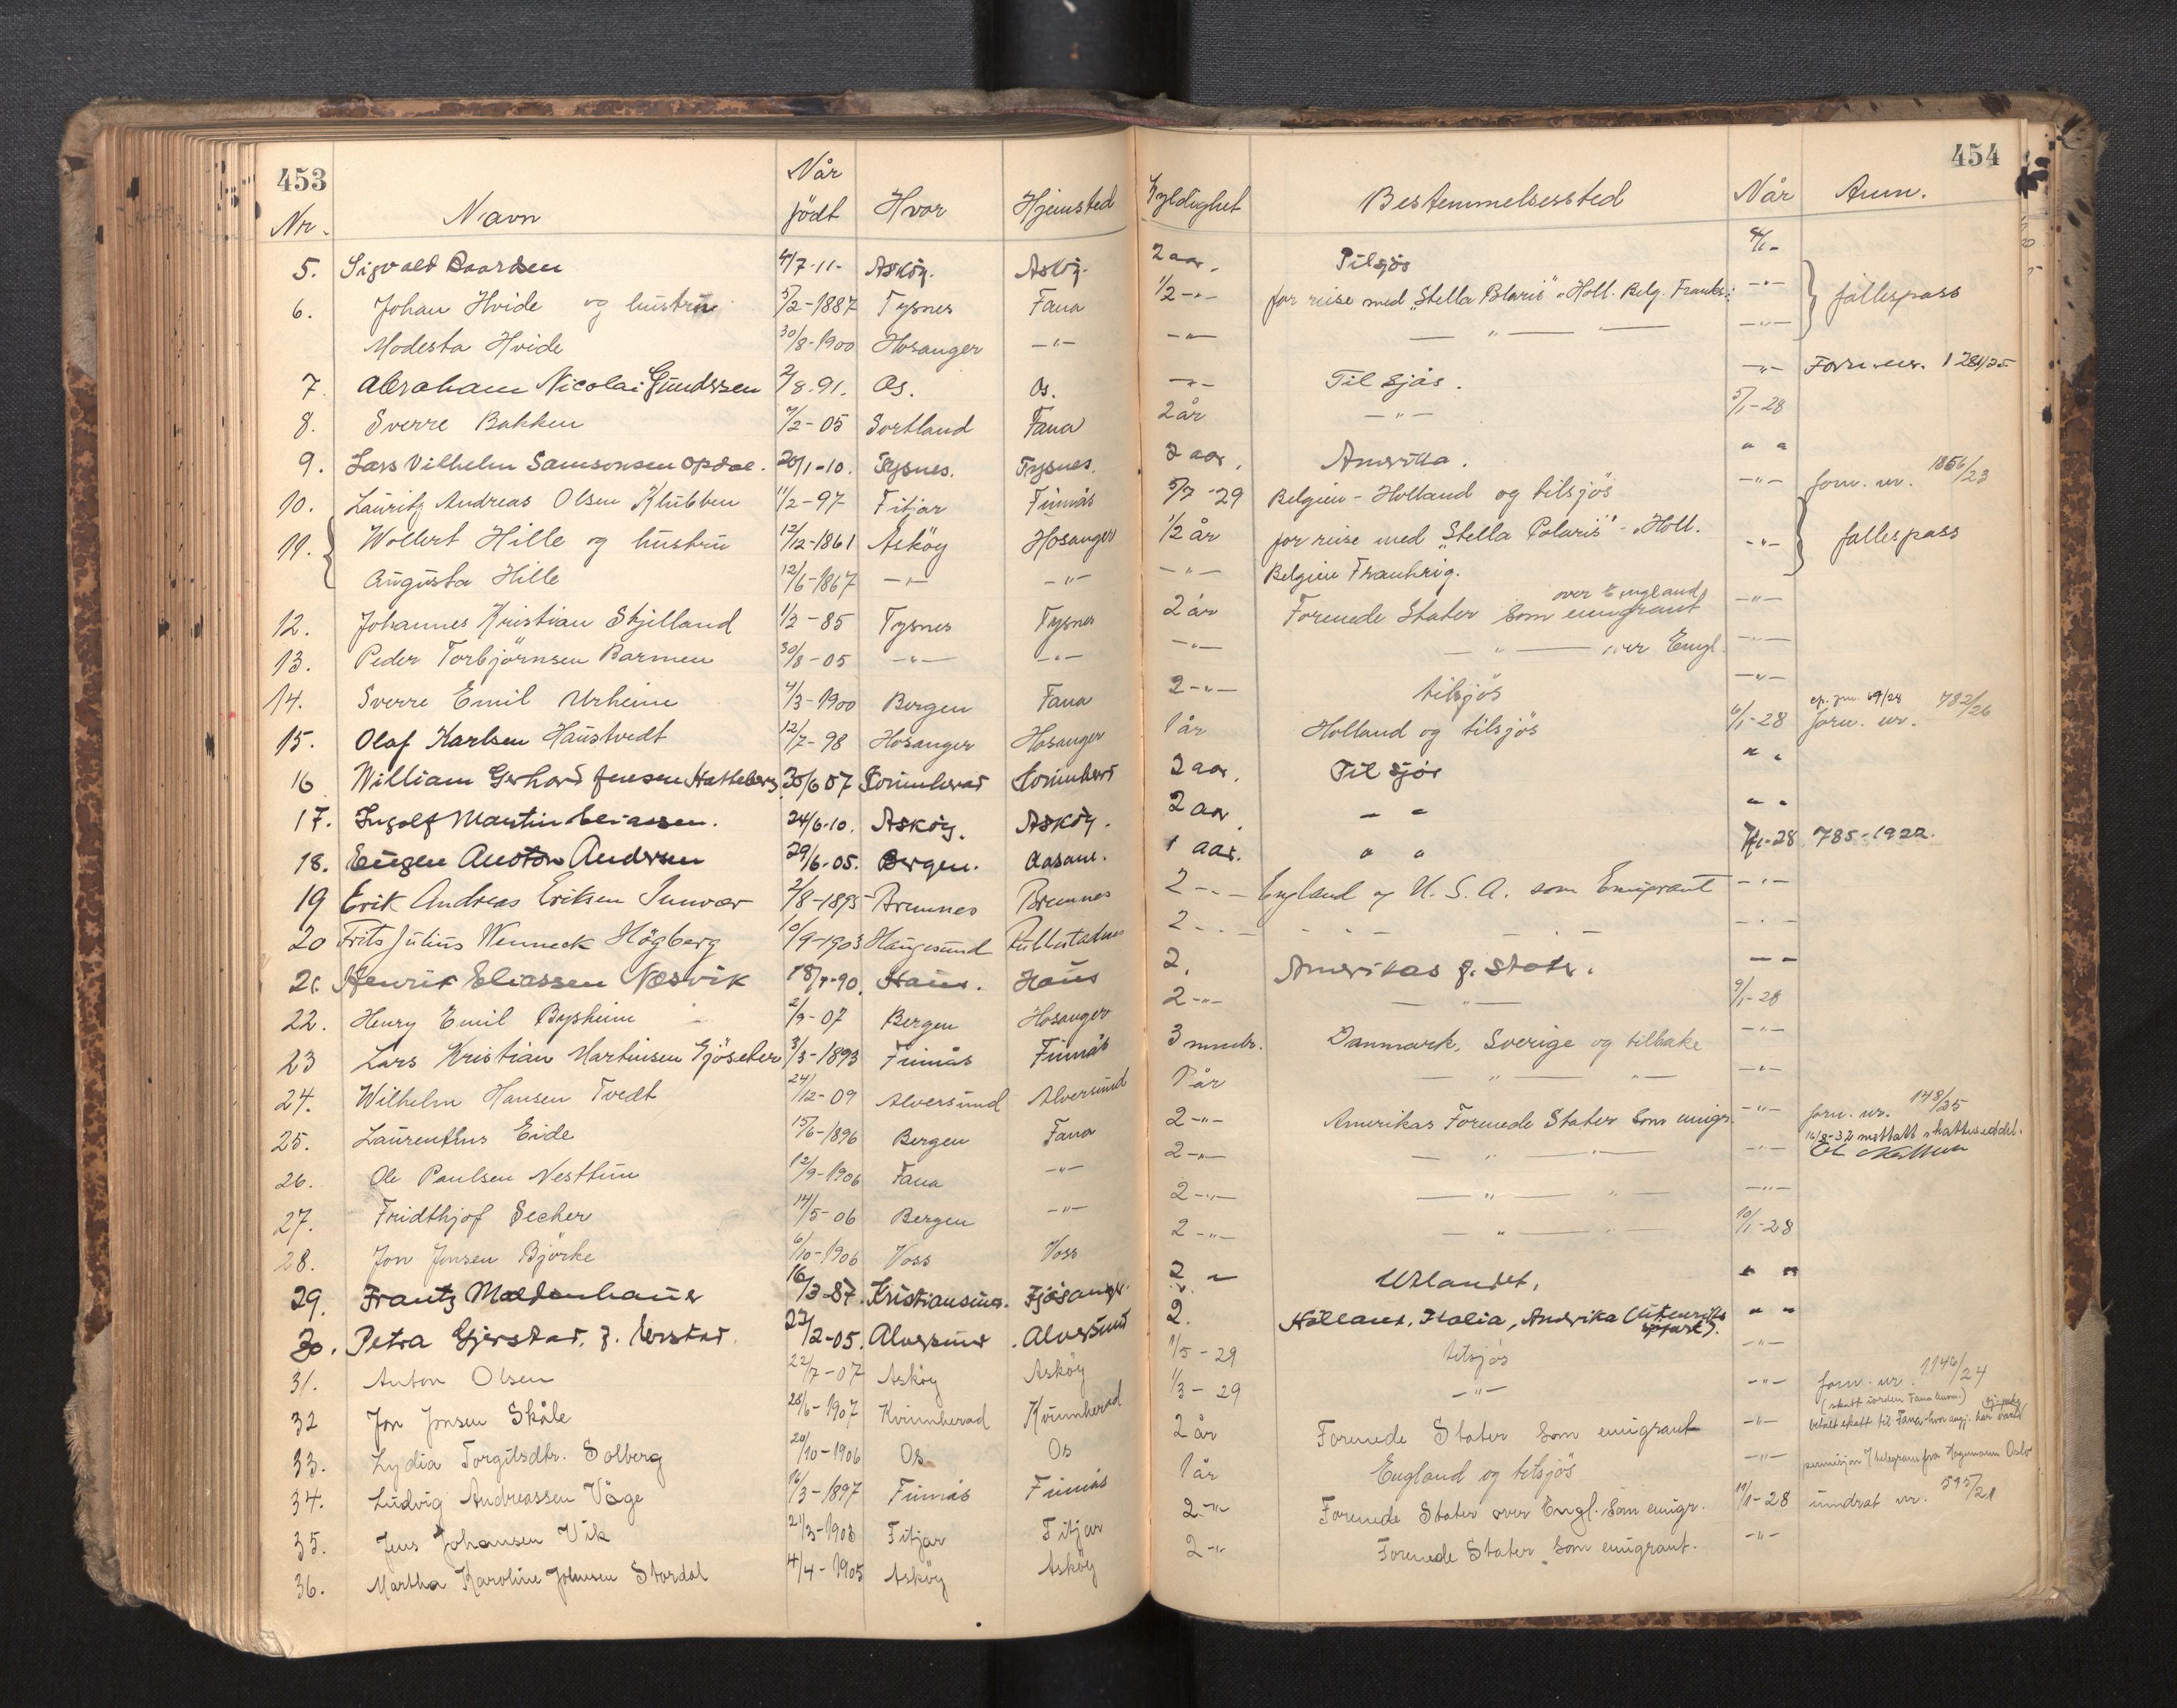 453
454
Nr. Navn Når födt Hvor Hjemsted Gyldighet Bestemmelsessted Når Anm.
5. Sigvald Baardsen 4/7-11- Askøy. Askøy. 2 aar. Tilsjøs 4/1-
6. Johan Hvide og hustru 5/2-1887 Tysnes Fana 1/2 -"- for reise med "Stella Polaris" Holl. Belg. Frankr. -"- fallespass
Modesta Hvide 30/8-1900 Hosanger -"- -"- -"- -"-
7. Abraham Nicolai Gundersen 2/8.91. Os. Os. -"- Til sjøs. -"- Forn. nr. 1281/25
8. Sverre Bakken 7/2-05 Sortland Fana 2 år -"- 5/1-28
9. Lars Vilhelm Samsonsen Opdal. 20/1-10. Tysnes. Tysnes. 2 aar. Amerika. " "
10. Lauritz Andreas Olsen Klubben 11/2-97 Fitjar Finnås 5/7-29 Belgien - Holland og tilsjös -"- forn. nr. 1856/23
11. Wollert Hille og hustru 12/12-1861 Asköy Hosanger 1/2 år for reise med "Stella Polaris" Holl. -"- fallespass
Augusta Hille 12/6-1867 -"- -"- -"- Belgien Frankrig.
12. Johannes Kristian Skjelland 1/3-85 Tysnes Tysnes 2 år Forenede Stater som emigrant over England -"-
13. Peder Torbjörnsen Barmen 30/8-05 -"- -"- -"- -"- over Engl. -"-
14. Sverre Emil Urheim 4/3-1900 Bergen Fana 2-"- tilsjös -"-
15. Olaf Karlsen Haustvedt 12/7-98 Hosanger Hosanger 1 år Holland og tilsjös 6/1-28 forn. nr. 782/26
16 William Gerhard Jensen Hatteberg 30/6 07 Kvinnherad Kvinnherd 2 aar. Til sjøs " "
17. Ingolf Martin Eliassen. 24/6-10. Askøy. Askøy. 2 aar. " " " "
18. Eugen Anoton Andersen 29/6-05. Bergen. Aasane. 1 aar. " " 7/1-28 785-1922.
19 Erik Andreas Eriksen Innvær 2/8-1895 Bremnes Bremnes 2 -"- England og U.S.A. som Emigrant -"-
20 Frits Julius Wenneck Högberg 10/9-1903 Haugesund Fullestadnes 2 -"- -"- -"- -"-
21. Henrik Eliassen Næsvik 18/7-90. Haus. Haus 2. Amerikas f. stater. - -
22. Henry Emil Bysheim 2/9-07 Bergen Hosanger 2-"- -"- 9/1-28
23 Lars Kristian Martinsen Gjöseter 3/3-1893 Finnås Finnås 3 mndr. Danmark, Sverige og tilbake -"-
24. Wilhelm Hansen Tvedt 24/12-09 Alversund Alversund 1 år -"- -"- -"-
25. Laurentius Eide 15/6-1896 Bergen Fana 2-"- Amerikas Forenede Stater som emigr. -"- forn. nr. 148/25
26. Ole Paulsen Nesttun 12/9-1906 Fana -"- 2-"- -"- -"- -"- 16/8-32 mottatt skatteseddel.
27. Fridthjof Secher 14/5-06 Bergen -"- 2-"- -"- -"- -"-
28. Jon Jonsen Björke 6/10-1906 Voss Voss 2-"- -"- -"- 10/1-28
29. Frantz Moldenhauer 16/3-87. Kristiansund. Fjøsanger. 2 " Utlandet. " "
30. Petra Gjerstad, f. Gerstad. 22/2-05. Alversund. Alversund 2. Holland, Italia, Amerika (Utenriks sjøfart). " "
31. Anton Olsen 22/7-07 Asköy Asköy 1/5-29 tilsjös -"-
32 Jon Jonsen Skåle 28/6-1907 Kvinnherad Kvinnherad 1/3-29 -"- -"- forn. nr. 1146/24
33. Lydia Torgilsdtr. Solberg 20/10-1906 Os Os 2 år Forenede Stater som emigrant -"- betalt skatt til Fana
34. Ludvig Andreassen Våge 16/3-1897 Finnås Finnås 1 år England og tilsjös -"- permisjon / telegram fra Oslo
35. Jens Johansen Vik 21/3-1903 Fitjar Fitjar 2-"- Forenede Stater over Engl. som emigr. 11/1-28 inndrat nr. 595/21
36. Martha Karoline Johnsen Stordal 4/4-1905 Asköy Asköy 2-"- Forenede Stater som emigrant. -"-